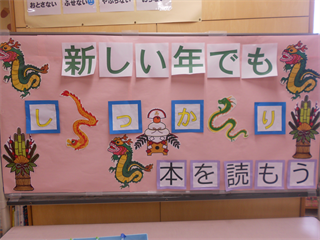 おとさない ふせない やぶらない
新しい年でも
しっかり
本を読もう